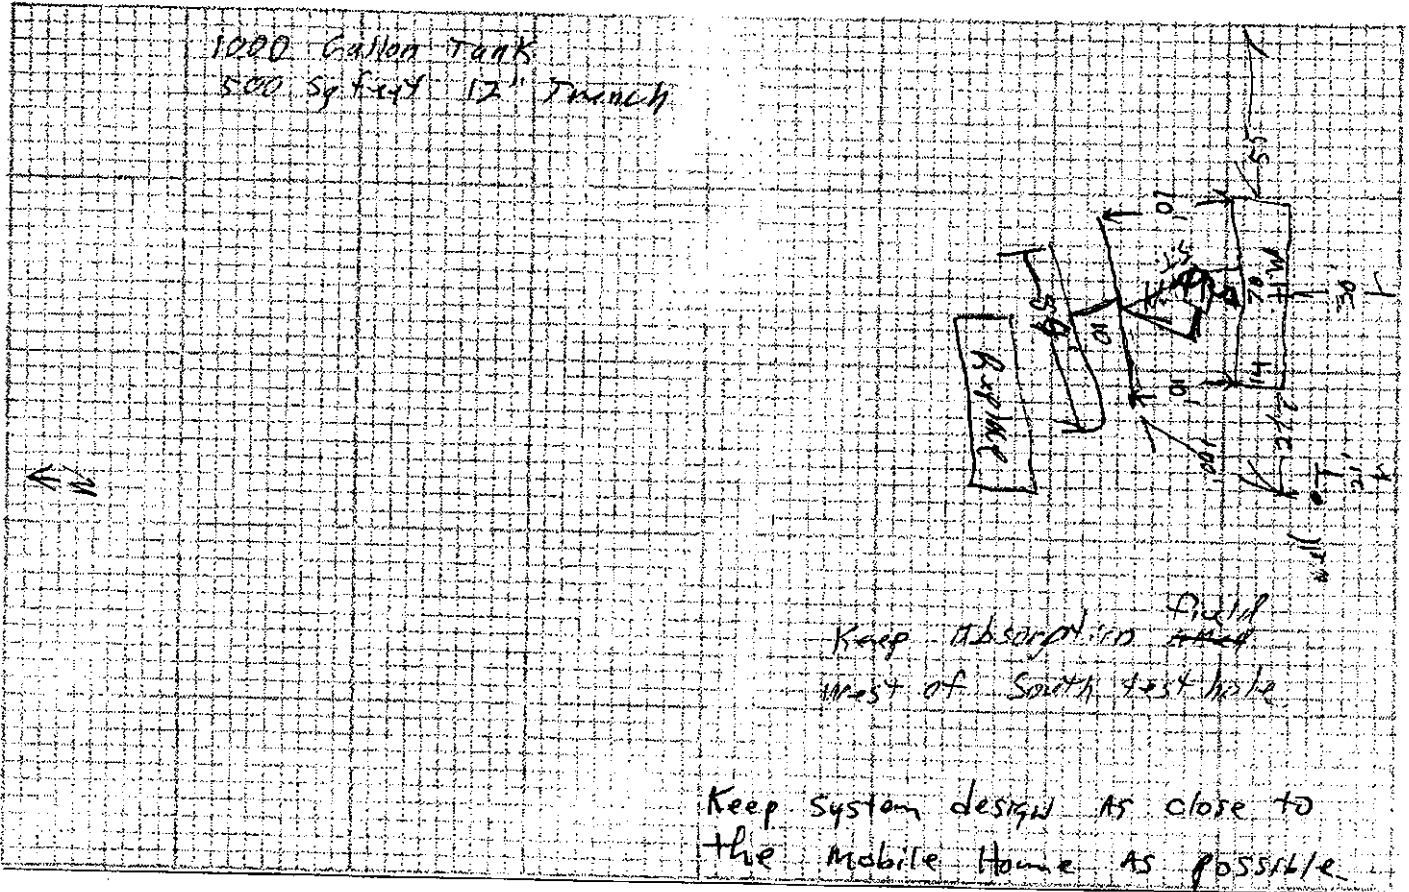 1000 Gallon Tank
500 Sq feet 12" Trench
55
10'
10'
10
70
14
30'
Replace
100'
21'
well
N
field
Keep absorption
west of South test hole
Keep System design As close to
the Mobile Home As possible